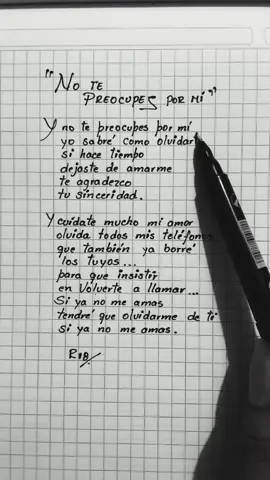 "No te
preocupes por mí"
Y no te preocupes por mí
yo sabré como olvidar
si hace tiempo
dejaste de amarme
te agradezco
tu sinceridad.
Y cuídate mucho mi amor
olvida todos mis teléfonos
que también ya borré
los tuyos...
para que insistir
en volverte a llamar...
Si ya no me amas
tendré que olvidarme de ti
si ya no me amas.